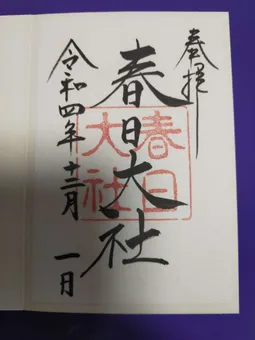 奉拝
春日大社
春日大社
令和四年十二月一日